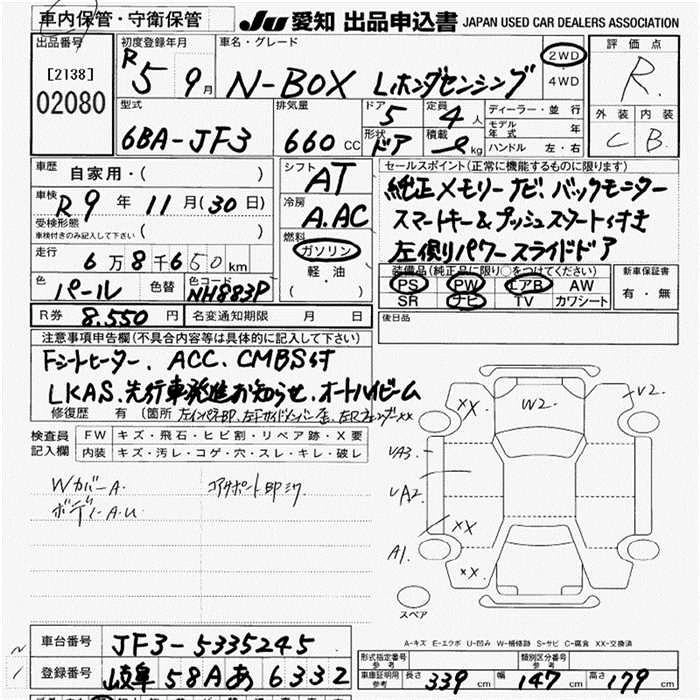 車内保管・守衛保管
JU 愛知 出品申込書 JAPAN USED CAR DEALERS ASSOCIATION
出品番号
[2138]
02080
初度登録年月
R5 9月
車名・グレード
N-BOX Lホンダセンシング
2WD
4WD
評価点
R.
型式
6BA-JF3
排気量
660 CC
ドア 5
形状 ドア
定員 4 人
積載 kg
ディーラー・並行
モデル年式 年
ハンドル 左・右
外装 内装
C B.
車歴
自家用・( )
車検
R9年11月(30日)
受検形態
車検付きのみ記入して下さい ( )
走行
6万8千650km
色
パール
色替
色コード
NH883P
R券 8.550円
名変通知期限 月 日
シフト
AT
冷房
A.AC
燃料
ガソリン
軽・油
( )
セールスポイント(正常に機能するものに限ります)
純正メモリーナビ!バックモニター
スマートキー&プッシュスタート付き
左側パワースライドドア
装備品(純正品に限り○をつけてください)
PS PW エアB AW
SR ナビ TV カワシート
新車保証書
有・無
後日品
注意事項申告欄(不具合内容等は具体的に記入して下さい)
Fシートヒーター. ACC. CMBS付
LKAS. 先行車発進お知らせ. オートハイビーム
修復歴 有 (箇所
検査員記入欄
FW キズ・飛石・ヒビ割・リペア跡・X要
内装 キズ・汚レ・コゲ・穴・スレ・キレ・破レ
WカバーA.
ボディーA.U
コアサポート即ミク
XX
W2.
V2.
UA3
UA2
XX
A1.
XX
スペア
A-キズ E-エクボ U-凹み W-補修跡 S-サビ C-腐食 XX-交換済
車台番号 JF3-5335245
登録番号 岐阜 58Aあ6332
形式指定番号
参考
類別区分番号
参考
車庫証明用
参考
長さ 339 cm 幅 147 cm 高さ 179 cm